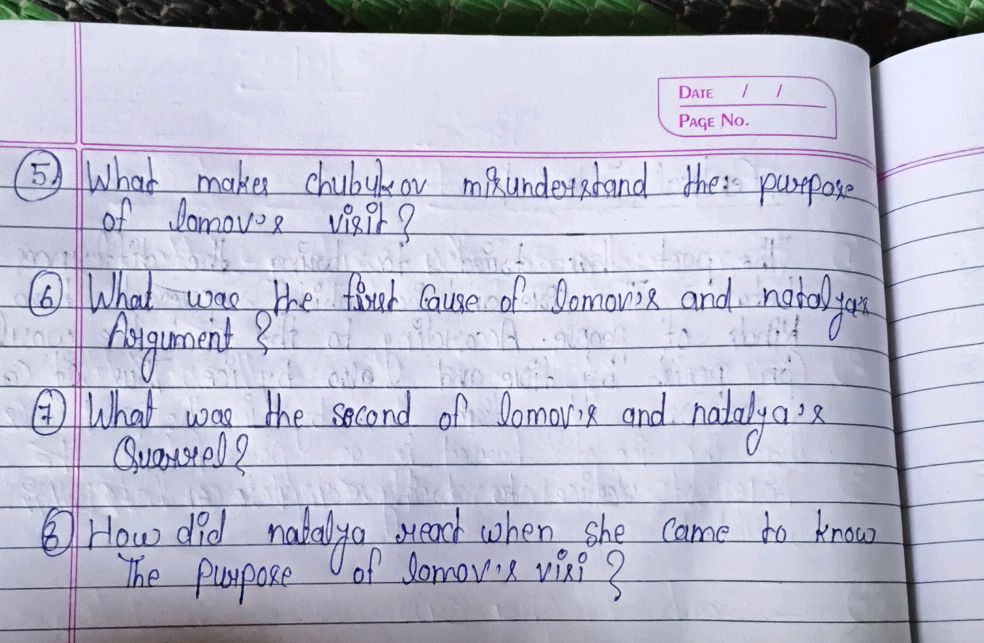 DATE / /
PAGE NO.
5 What makes chubykov misunderstand the: purpose
of lomov's visit?
6 What was the first cause of lomov's and natalya's
Argument?
7 What was the second of lomov's and natalya's
Quarrel?
8 How did natalya react when she came to know
The purpose of lomov's visi?